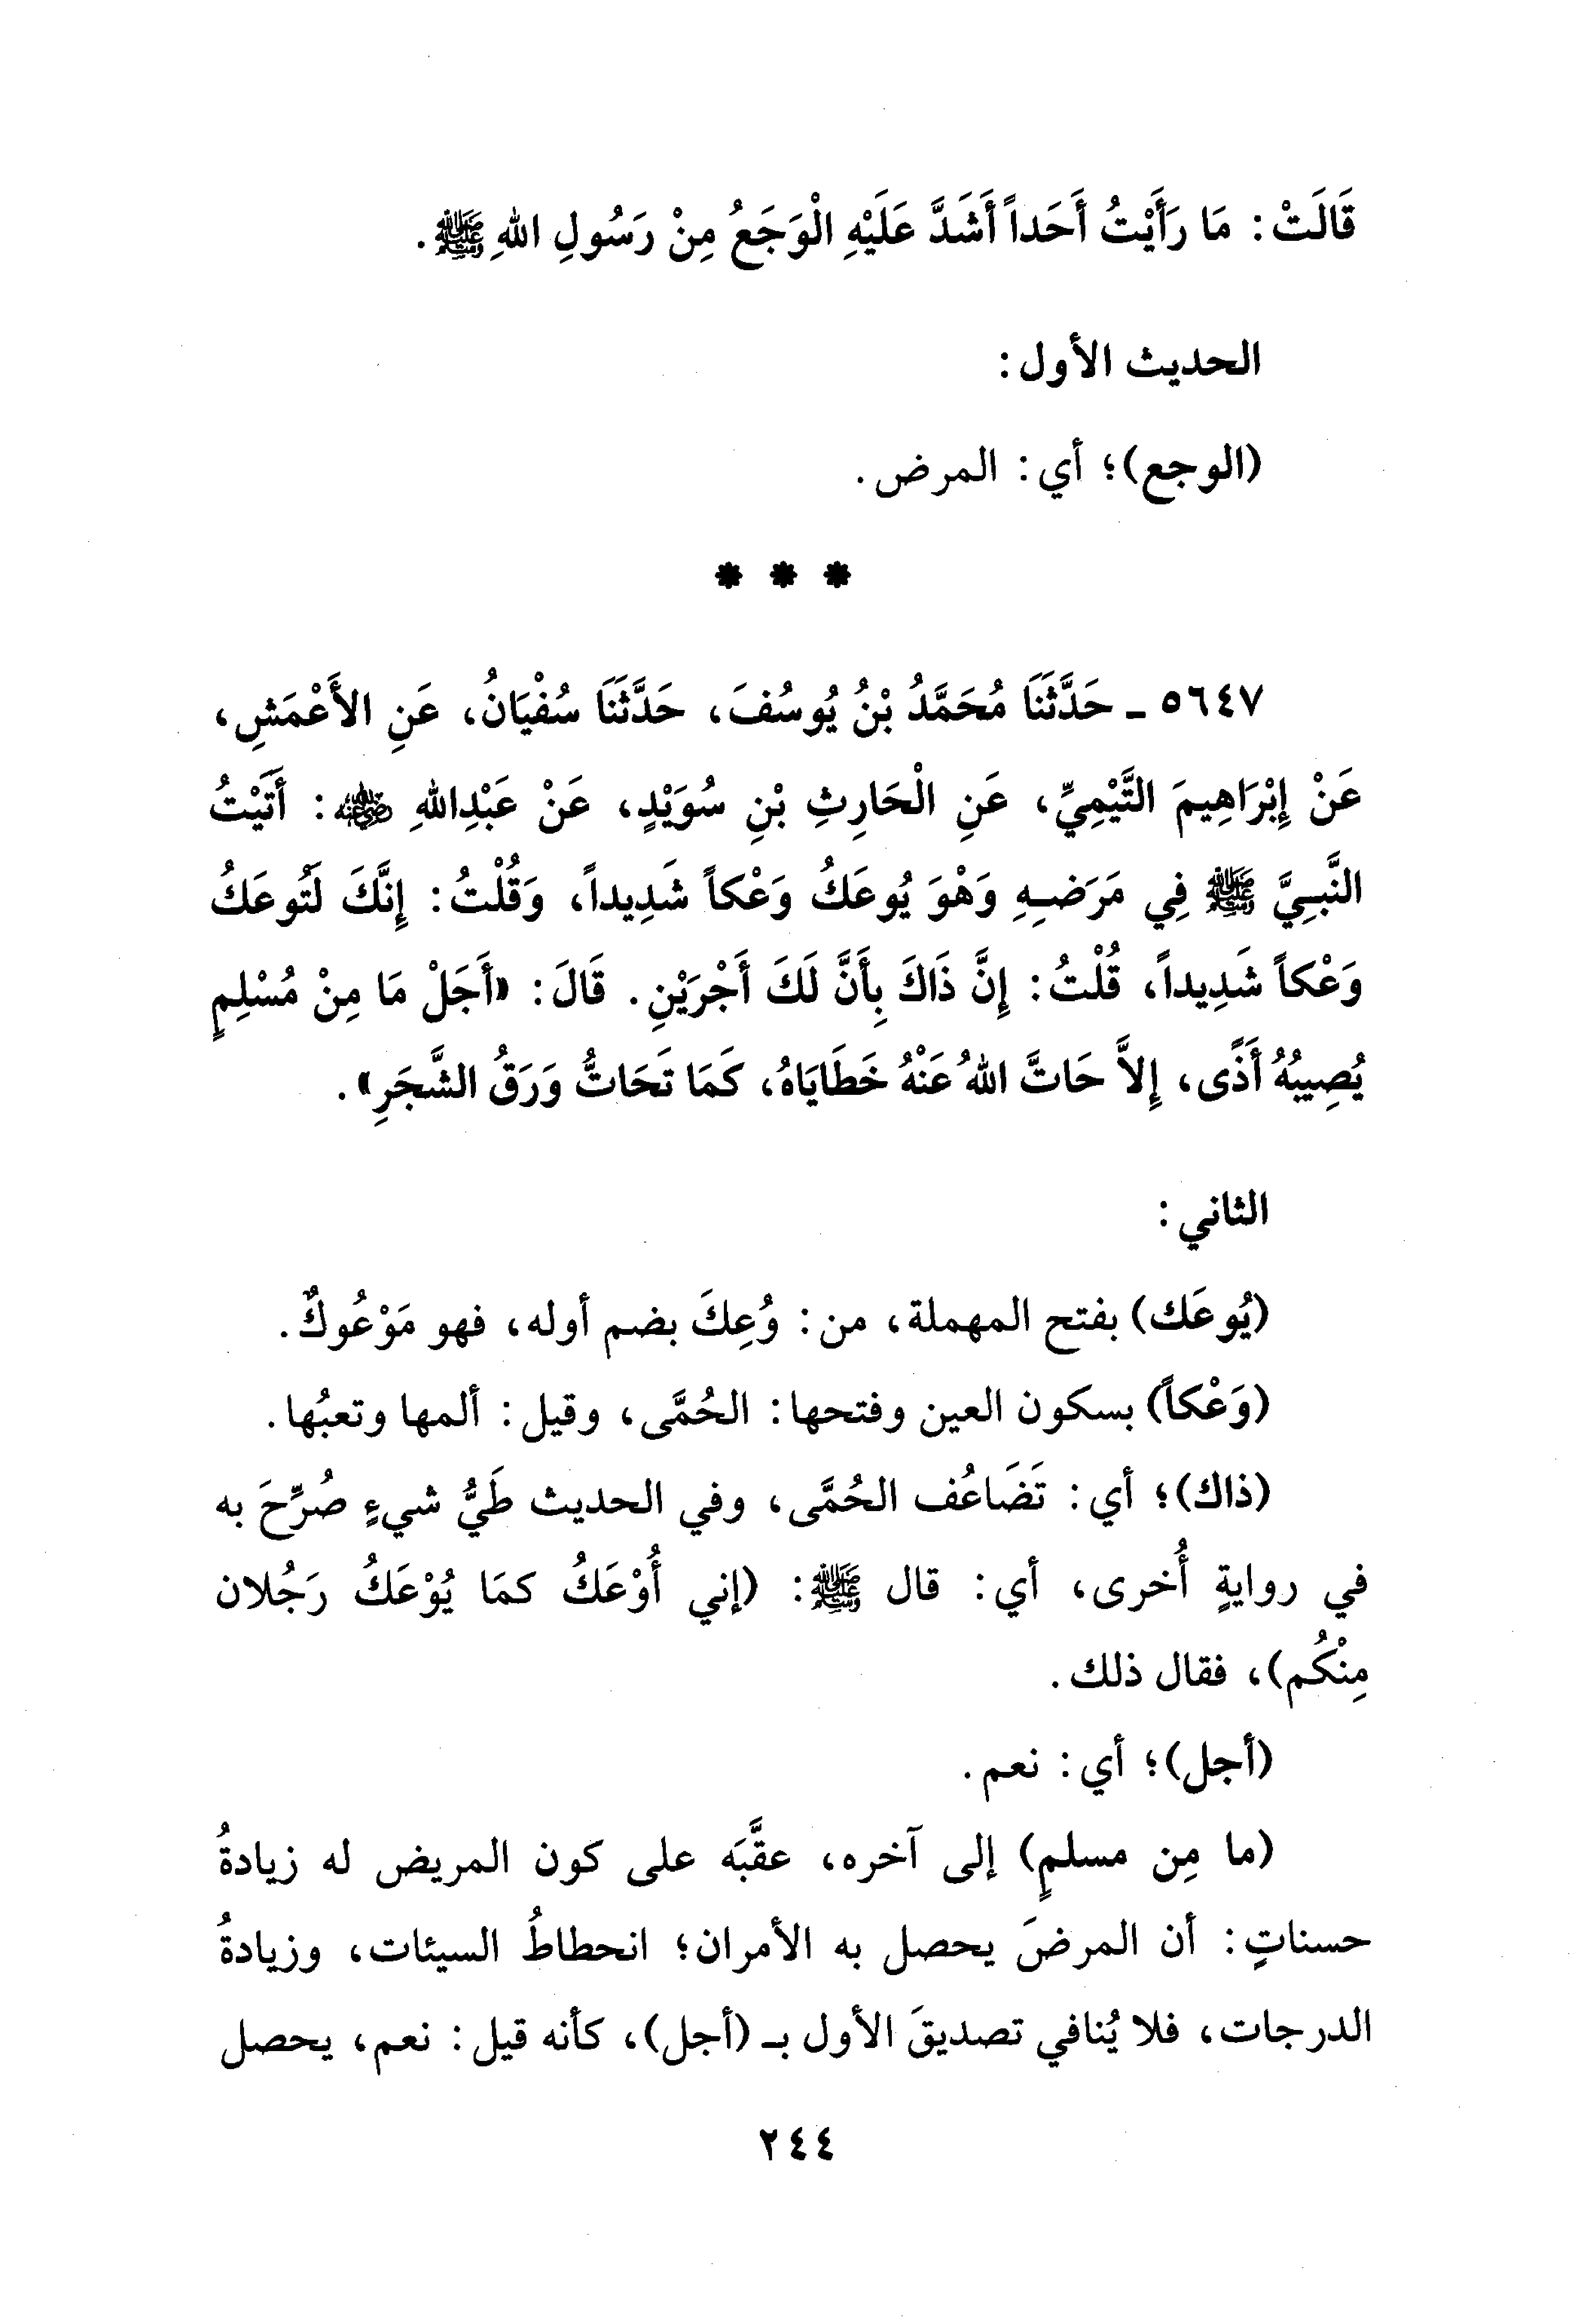 قَالَتْ: مَا رَأَيْتُ أَحَداً أَشَدَّ عَلَيْهِ الْوَجَعُ مِنْ رَسُولِ اللهِ ﷺ.
الحديث الأول:
(الوجع)؛ أي: المرض.
* * *
٥٦٤٧ ـ حَدَّثَنَا مُحَمَّدُ بْنُ يُوسُفَ، حَدَّثَنَا سُفْيَانُ، عَنِ الأَعْمَشِ،
عَنْ إِبْرَاهِيمَ التَّيْمِيِّ، عَنِ الْحَارِثِ بْنِ سُوَيْدٍ، عَنْ عَبْدِاللهِ رضي الله عنه: أَتَيْتُ
النَّبِيَّ ﷺ فِي مَرَضِهِ وَهْوَ يُوعَكُ وَعْكاً شَدِيداً، وَقُلْتُ: إِنَّكَ لَتُوعَكُ
وَعْكاً شَدِيداً، قُلْتُ: إِنَّ ذَاكَ بِأَنَّ لَكَ أَجْرَيْنِ. قَالَ: «أَجَلْ مَا مِنْ مُسْلِمٍ
يُصِيبُهُ أَذًى، إِلاَّ حَاتَّ اللهُ عَنْهُ خَطَايَاهُ، كَمَا تَحَاتُّ وَرَقُ الشَّجَرِ».
الثاني:
(يُوعَك) بفتح المهملة، من: وُعِكَ بضم أوله، فهو مَوْعُوكٌ.
(وَعْكاً) بسكون العين وفتحها: الحُمَّى، وقيل: ألمها وتعبُها.
(ذاك)؛ أي: تَضَاعُف الحُمَّى، وفي الحديث طَيُّ شيءٍ صُرِّحَ به
في روايةٍ أُخرى، أي: قال ﷺ: (إني أُوْعَكُ كمَا يُوْعَكُ رَجُلان
مِنْكُم)، فقال ذلك.
(أجل)؛ أي: نعم.
(ما مِن مسلمٍ) إلى آخره، عقَّبَه على كون المريض له زيادةُ
حسناتٍ: أن المرضَ يحصل به الأمران؛ انحطاطُ السيئات، وزيادةُ
الدرجات، فلا يُنافي تصديقَ الأول بـ (أجل)، كأنه قيل: نعم، يحصل
٢٤٤